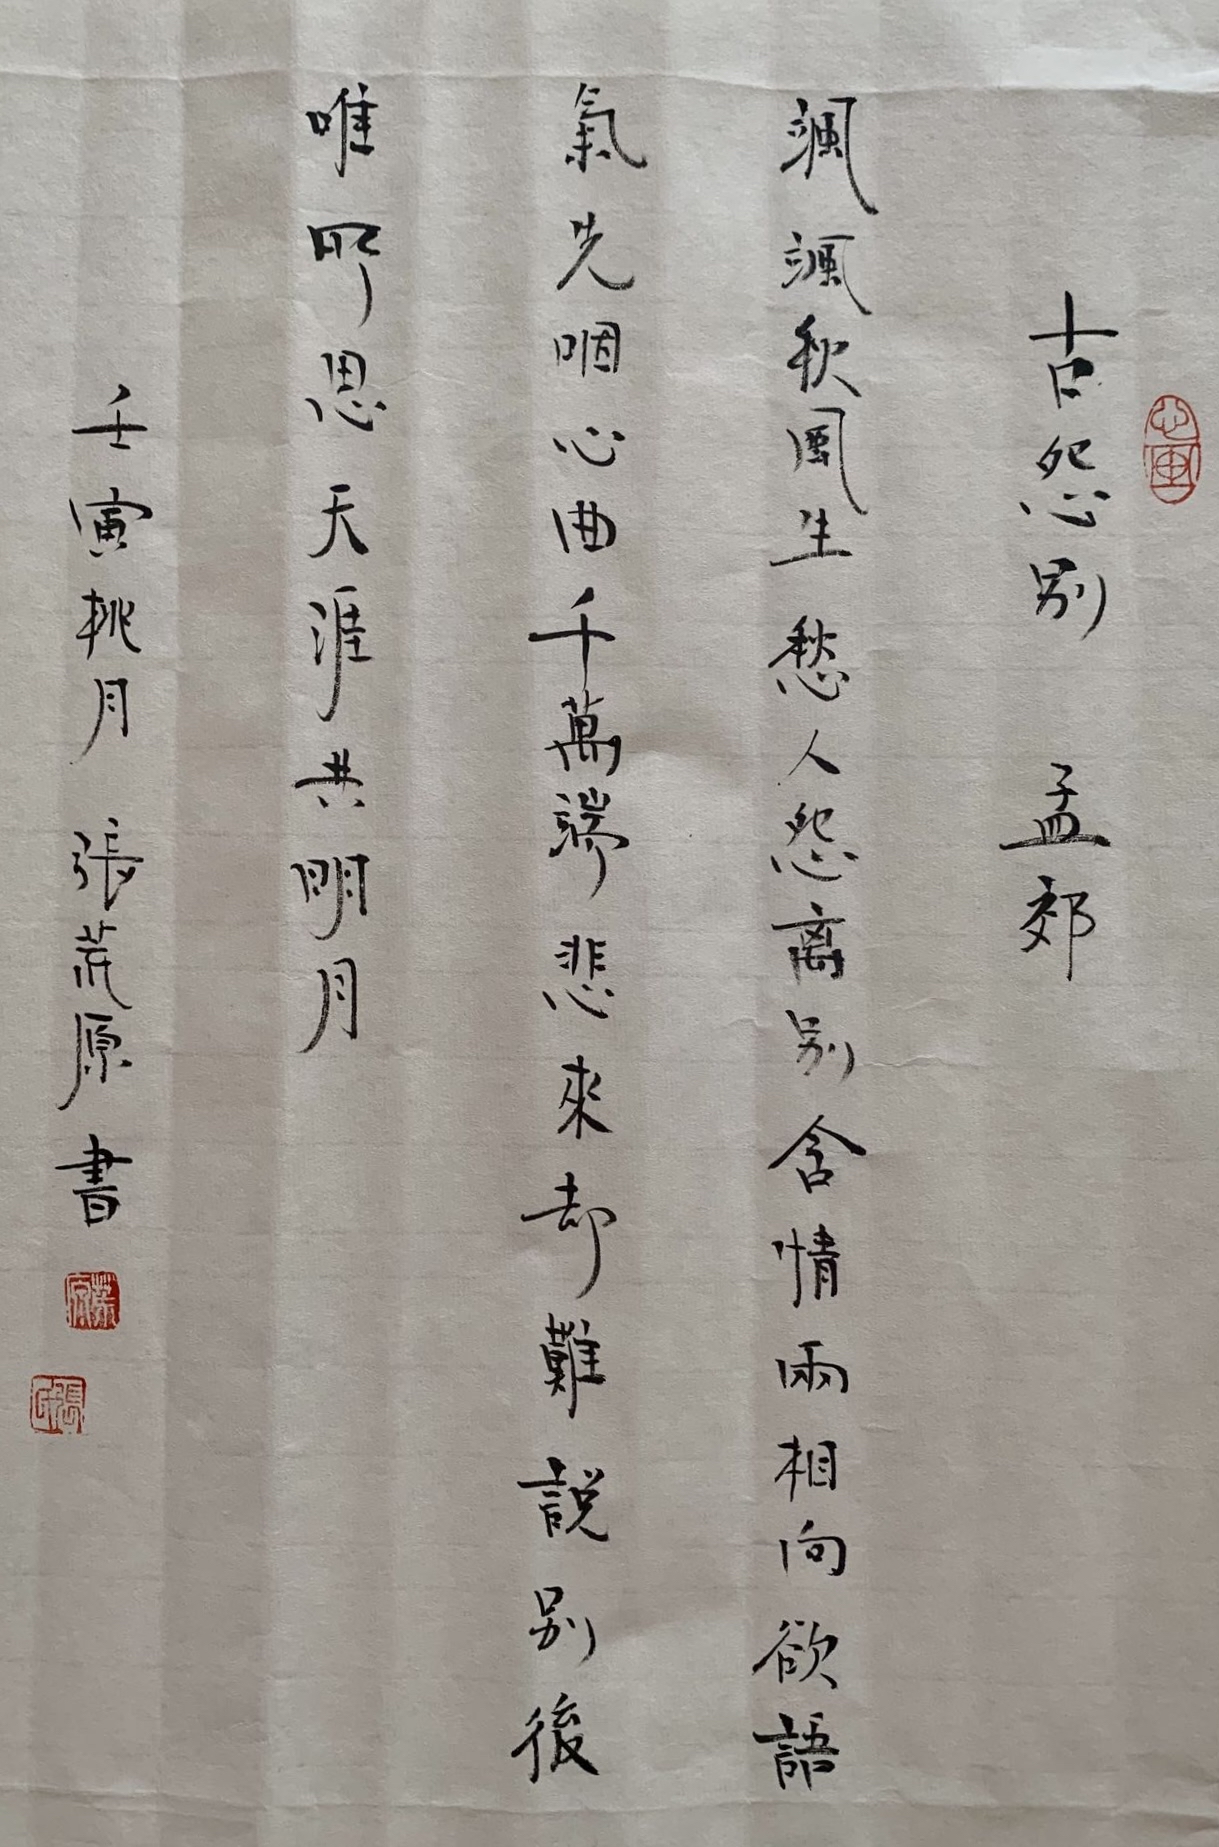 古怨别 孟郊
颯颯秋風生愁人怨离别含情兩相向欲語
氣先咽心曲千萬端悲來却難説别後
唯所思天涯共明月
壬寅桃月 張荒原書